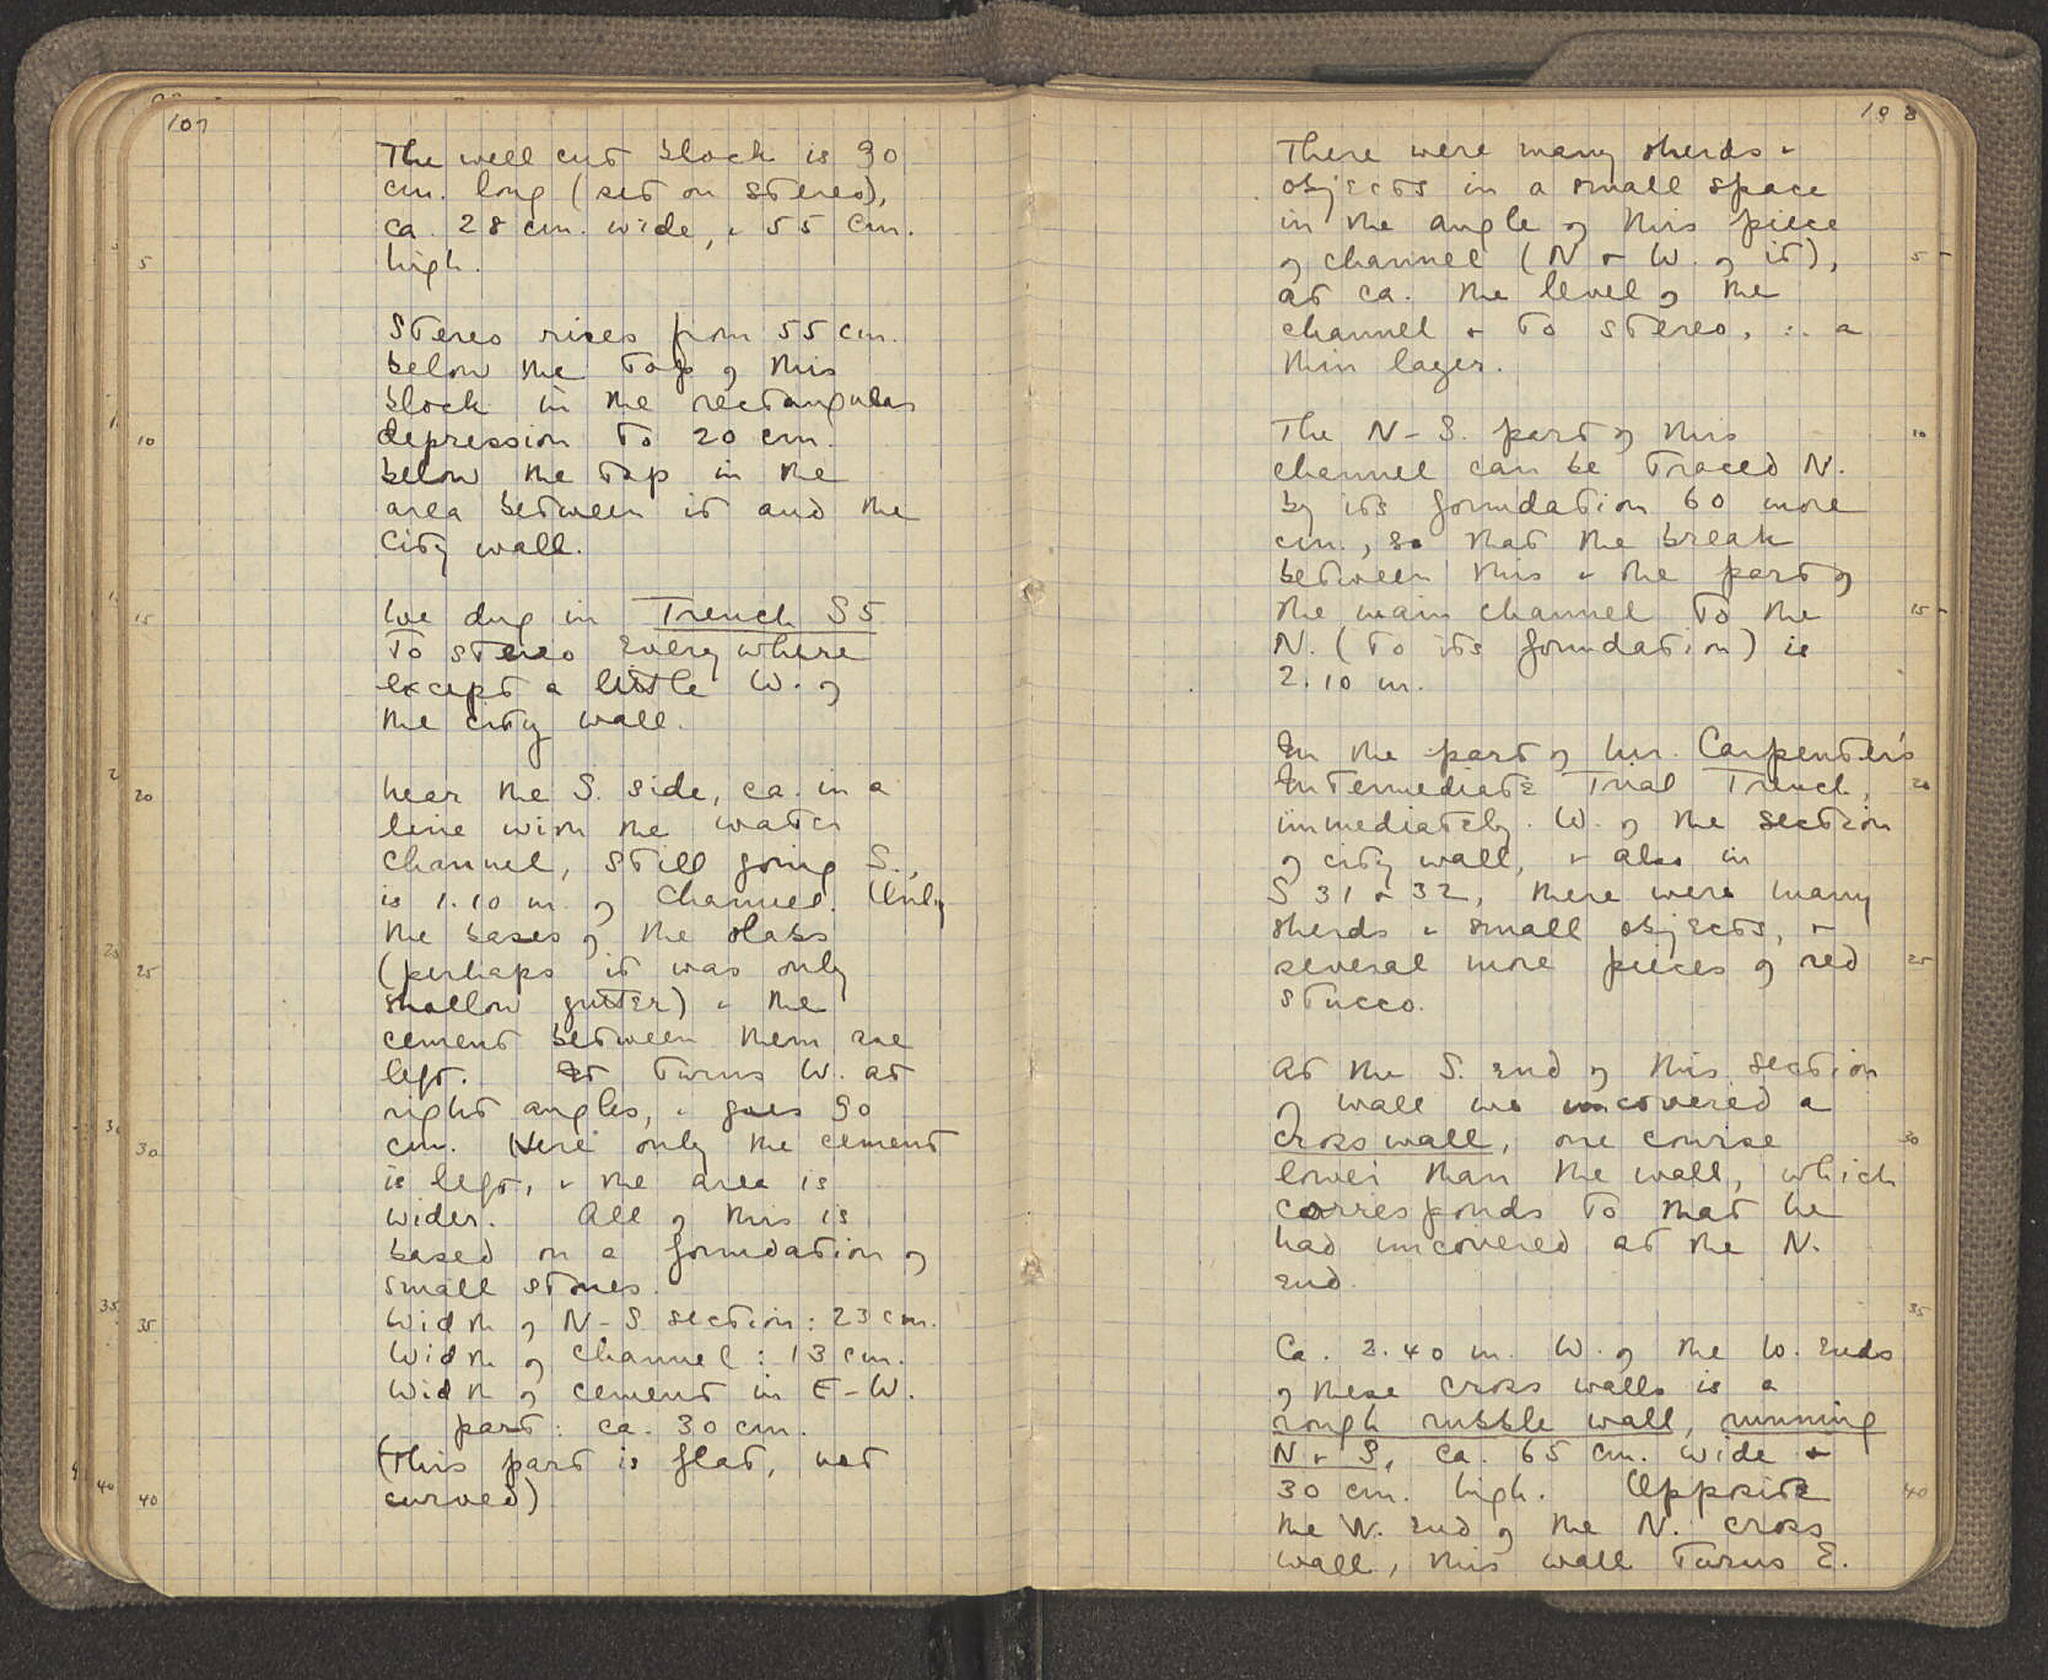 107
The well cut block is 90
cm. long (set on stereo),
ca. 28 cm. wide, + 55 cm.
5
high.
Stereo rises from 55 cm.
below the top of this
block in the rectangular
10
depression to 20 cm.
below the top in the
area between it and the
city wall.
15
We dug in Trench S5
to stereo everywhere
except a little W. of
the city wall.
20
Near the S. side, ca. in a
line with the water
channel, still going S.,
is 1.10 m. of channel. Only
the bases of the slabs
25
(perhaps it was only
shallow gutter) + the
cement between them are
left. It turns W. at
right angles, + goes 90
30
cm. Here only the cement
is left, + the area is
wider. All of this is
based on a foundation of
small stones.
35
Width of N-S section: 23 cm.
Width of channel: 13 cm.
Width of cement in E-W.
part: ca. 30 cm.
(This part is flat, not
40
curved)
108
There were many sherds +
objects in a small space
in the angle of this piece
of channel (N + W. of it),
5
at ca. the level of the
channel + to stereo, ∴ a
thin layer.
The N-S. part of this
10
channel can be traced N.
by its foundation 60 more
cm., so that the break
between this + the part of
the main channel to the
15
N. (to its foundation) is
2.10 m.
In the part of Mr. Carpenter's
Intermediate Trial Trench,
20
immediately W. of the section
of city wall, + also in
S 31 + 32, there were many
sherds + small objects, +
several more pieces of red
25
stucco.
At the S. end of this section
of wall we uncovered a
cross wall, one course
30
lower than the wall, which
corresponds to that he
had uncovered at the N.
end.
35
Ca. 2.40 m. W. of the W. ends
of these cross walls is a
rough rubble wall, running
N + S, ca. 65 cm. wide +
30 cm. high. Opposite
40
the W. end of the N. cross
wall, this wall turns E.